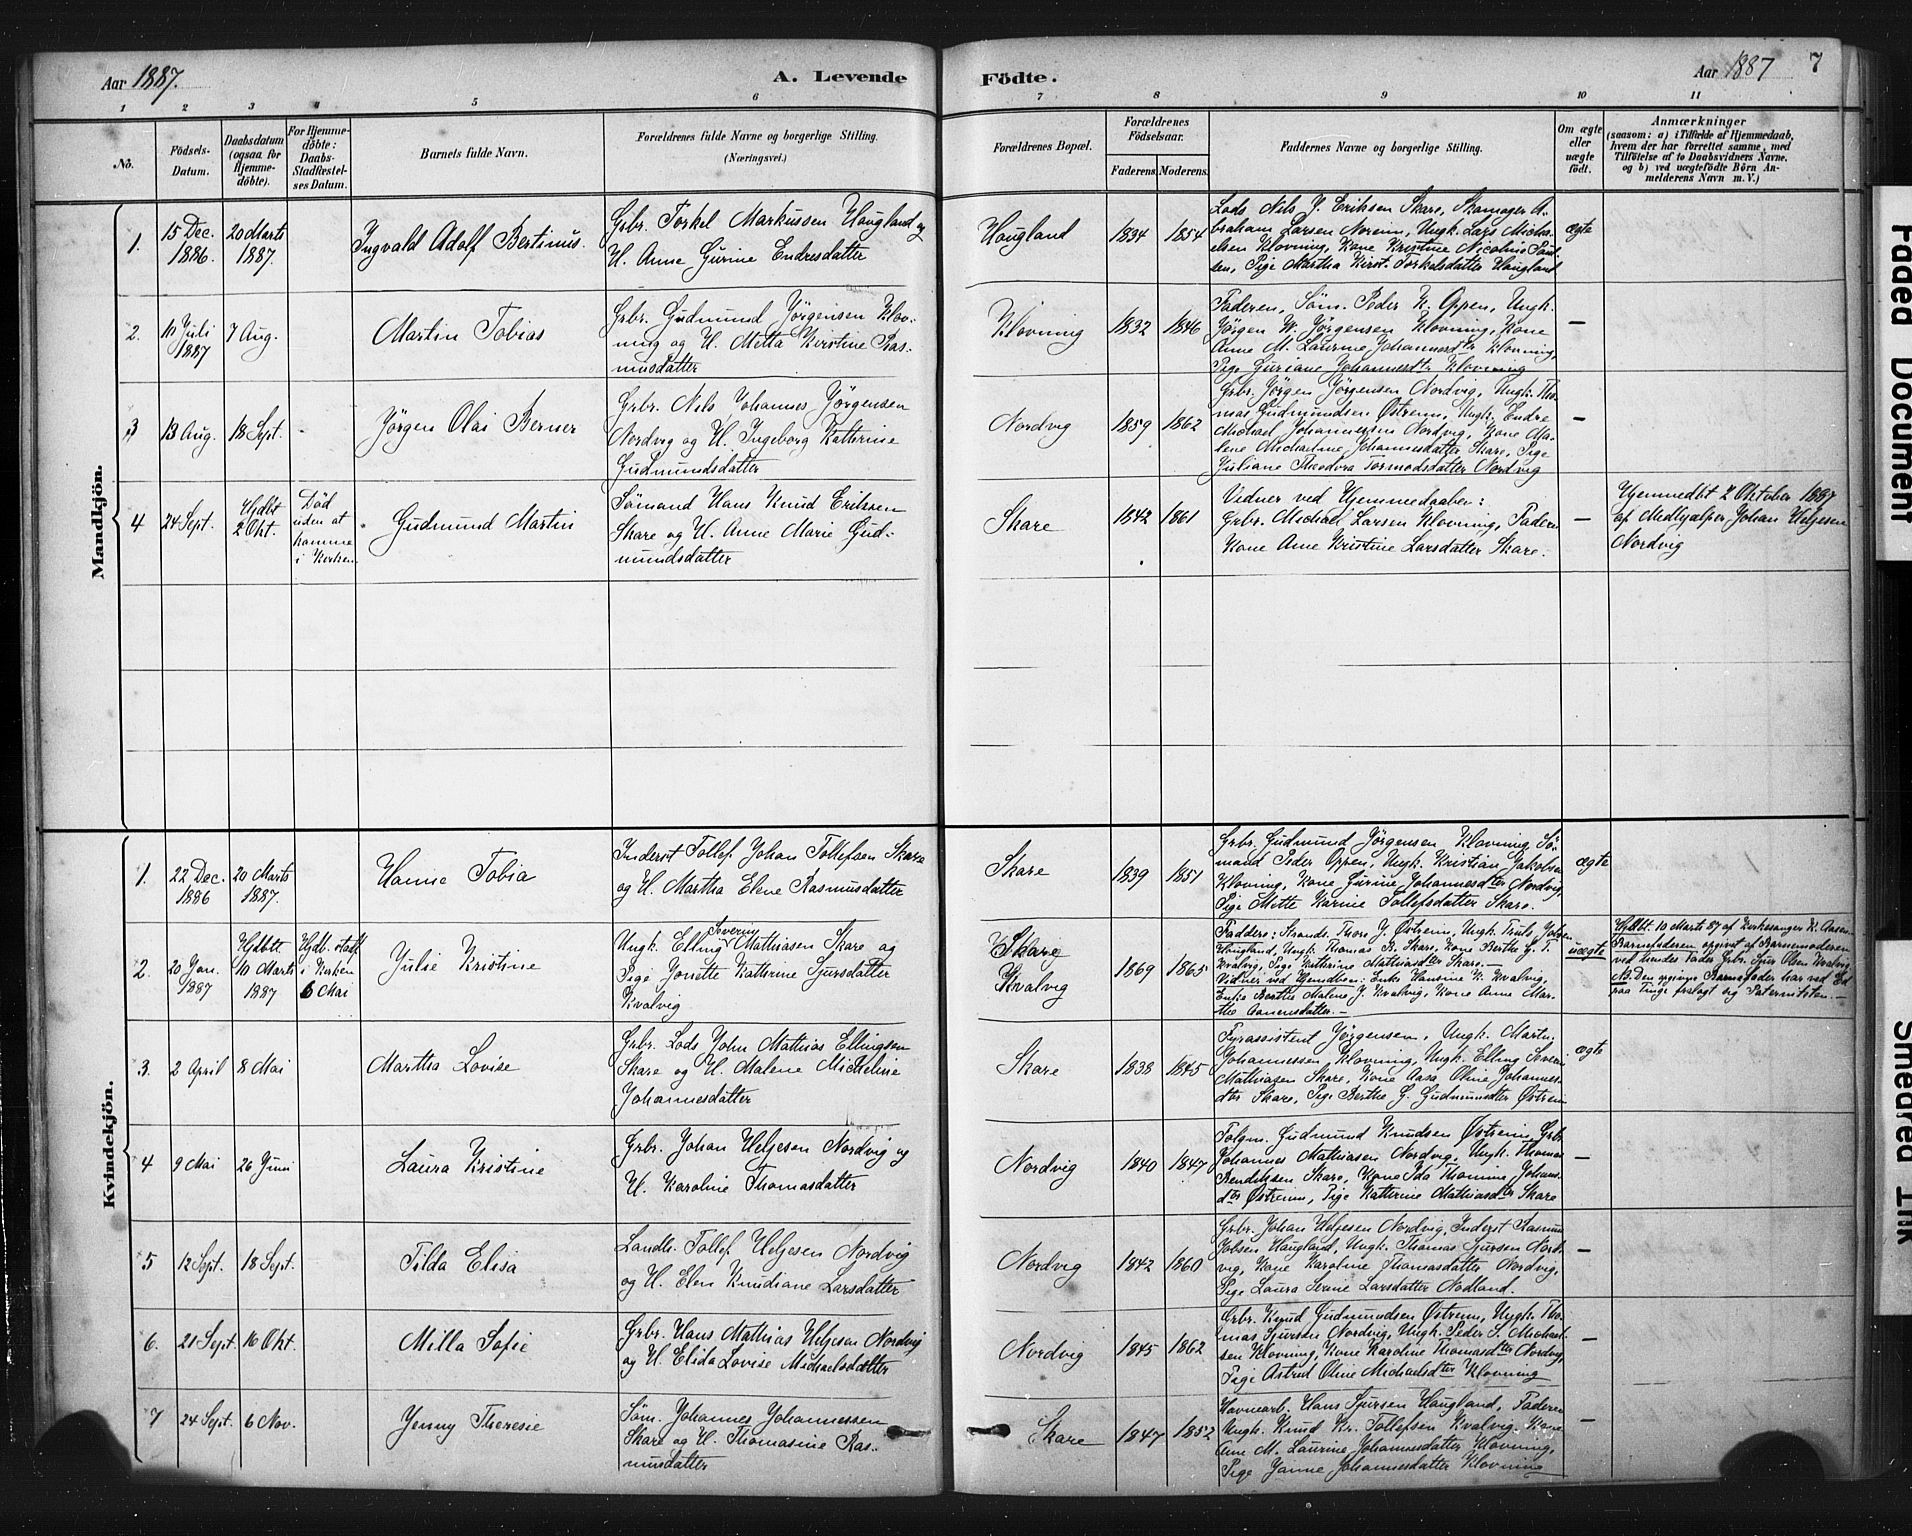 Aar 1887.
A. Levende
Födte.
Aar 1887
7
1 2 3 4 5 6 7 8 9 10 11
No.
Födsels-
Datum.
Daabsdatum
(ogsaa for
Hjemme-
döbte).
For Hjemme-
döbte:
Daabs-
Stadfæstel-
ses Datum.
Barnets fulde Navn.
Forældrenes fulde Navne og borgerlige Stilling.
(Næringsvei.)
Forældrenes Bopæl.
Forældrenes
Födselsaar.
Faderens. Moderens.
Faddernes Navne og borgerlige Stilling.
Om ægte
eller
uægte
födt.
Anmærkninger
(saasom: a) i Tilfælde af Hjemmedaab,
hvem der har forrettet samme, med
Tilföielse af to Daabsvidners Navne,
og b) ved uægtefödte Börn An-
melderens Navn m. V.)
Mandkjön.
1.
15 Dec.
1886.
20 Marts
1887.
Ingvald Adolf Bertinus.
Grbr. Torkel Markussen Haugland og
H. Anne Gurine Endresdatter
Haugland
1834
1854
Lods Nils J. Eriksen Skare, Skomager A-
braham Larsen Noreim, Ungk. Lars Micha-
elsen Klovning, Kone Kristine Nicoline
Pige Martha Kirst. Torkelsdatter Haugland
ægte
2.
10 Juli
1887
7 Aug.
Martin Tobias
Grbr. Gudmund Jörgensen Klov-
ning og H. Mitta Kirstine Ras-
musdatter
Klovning
1832
1846
Faderen, Söm. Peder K. Oppen, Ungk.
Jörgen W. Jörgensen Klovning, Kone
Anne M. Laurine Johannesdtr Klovning,
Pige Guriane Johannesdtr Klovning
—
3
13 Aug.
18 Sept.
-
Jörgen Olai Berner
Grbr. Nils Johannes Jörgensen
Nordvig og H. Ingeborg Kathrine
Gudmundsdatter
Nordvig
1859
1862
Grbr. Jörgen Jörgensen Nordvig, Ungk. Tho-
mas Gudmundsen Østrem, Ungk. Endre
Michael Johannessen Nordvig, Kone Ma-
lene Micheline Johannesdatter Skare, Pige
Juliane Theodora Tormodsdatter Nordvig
—
4
24 Sept.
Hjdbt
2 Okt.
Død
uden at
komme
i Kirken
Gudmund Martin
Sømand Hans Knud Eriksen
Skare og H. Anne Marie Gud-
mundsdatter
Skare
1842
1861
Vidner ved Hjemmedaaben:
Grbr. Michael Larsen Klovning, Faderen
Kone Ane Kristine Larsdatter Skare.
—
Hjemmedbt 2 Oktober 1887
af Medhjælper Johan Heljesen
Nordvig
Kvindekjön.
1.
22 Dec.
1886
20 Marts
1887.
Hanne Tobia
Inderst Tollef Johan Tollefsen Skare
og H. Martha Elene Rasmusdatter
Skare
1839
1851
Grbr. Gudmund Jörgensen Klovning, Sö-
mand Peder Oppen, Ungk. Kristian Jakobsen
Klovning, Kone Gurine Johannesdter Nordvig,
Pige Mitte Karine Tollefsdatter Skare.
ægte
2.
20 Jan.
1887
Hjdbte
10 Marts
1887
Hjdb. stadf.
i Kirken
6 Mai
Julie Kristine
Severin
Ungk. Elling Mathiasen Skare og
Pige Jonette Kathrine Sjursdatter
Kvalvig
Skare
Kvalvig
1869
1865
Faddere: Strands. Thore J. Østrem, Ungk. Truls
Haugland, Ungk. Thomas B. Skare, Kone Berthe G. T.
Kvalvig, Pige Kathrine Mathiasdtr Skare. —
Vidner ved Hjemdben: Enke Hansine K. Kvalvig,
Enke Berthe Malene J. Kvalvig, Kone Anne Mar-
the
uægte
Hjdbt. 10 Marts 87 af Kirkesanger K. Aasen.
Barnefaderen opgivet af Barnemoderen
ved hendes Fader Grbr. Sjur Olsen Kvalvig.
NB. Den opgivne Barnefader har ved Ed
paa Tinge fralagt sig Paterniteten. —
3.
2 April
8 Mai
Martha Lovise
Grbr. Lods John Mathias Ellingsen
Skare og H. Malene Micheline
Johannesdatter
Skare
1838
1845
Fyrassistent Jörgensen, Ungk. Martin
Johannessen, Klovning, Ungk. Elling Severin
Mathiasen Skare, Kone Aasa Oline Johannes-
dtr Skare, Pige Berthe G. Gudmundsdtter Østrem
ægte
4
9 Mai
26 Juni
Laura Kristine
Grbr. Johan Heljesen Nordvig og
H. Karoline Thomasdatter
Nordvig
1840
1847
Folgm. Gudmund Knudsen Østrem, Grbr.
Johannes Mathiasen Nordvig, Ungk. Thomas
Bendiksen Skare, Kone Ida Thomine Johans-
dtr Østrem, Pige Kathrine Mathiasdtr Skare
—
5
12 Sept.
18 Sept.
Tilda Elisa
Landh. Tollef Heljesen Nordvig
og H. Elen Knudiane Larsdatter
Nordvig
1842
1860
Grbr. Johan Heljesen Nordvig, Inderst Rasmus
Jobsen Haugland, Ungk. Thomas Sjursen Nord-
vig, Kone Karoline Thomasdatter Nordvig,
Pige Laura Serine Larsdatter Nodland.
—
6.
21 Sept.
16 Okt.
Milla Sofie
Grbr. Hans Mathias Heljesen Nordvig
og H. Elida Lovise Michaelsdatter
Nordvig
1845
1862
Grbr. Knud Gudmundsen Østrem, Ungk. Tho-
mas Sjursen Nordvig, Ungk. Peder S. Michael-
sen Klovning, Kone Karoline Thomasdtr Nordvig,
Pige Astrid Oline Michaelsdter Klovning
—
7
24 Sept.
6 Nov.
Jenny Theresie
Söm. Johannes Johannessen
Skare og H. Thomasine Ras-
musdatter
Skare
1847
1852
Havnearb. Hans Sjursen Haugland, Faderen
Ungk. Knud Kr. Tollefsen Kvalvig, Kone
Ane M. Laurine Johannesdatter Klovning,
Pige Janne Johannesdatter Klovning
—
Faded Document
Smeared Ink